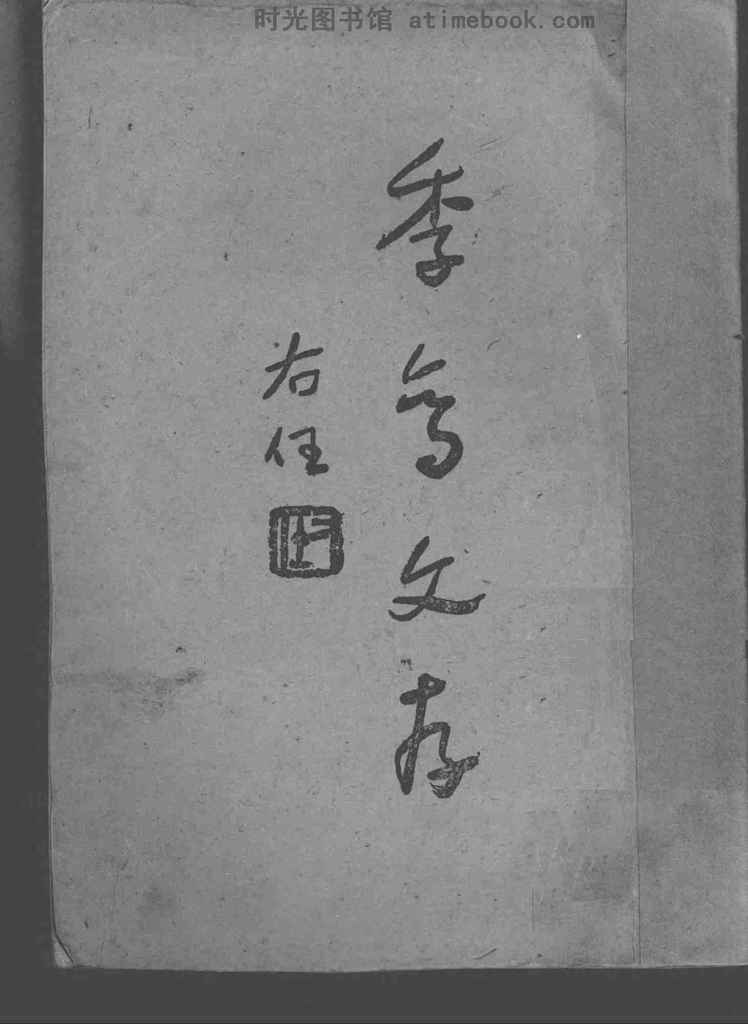 时光图书馆 atimebook.com
季鸾文存
右任